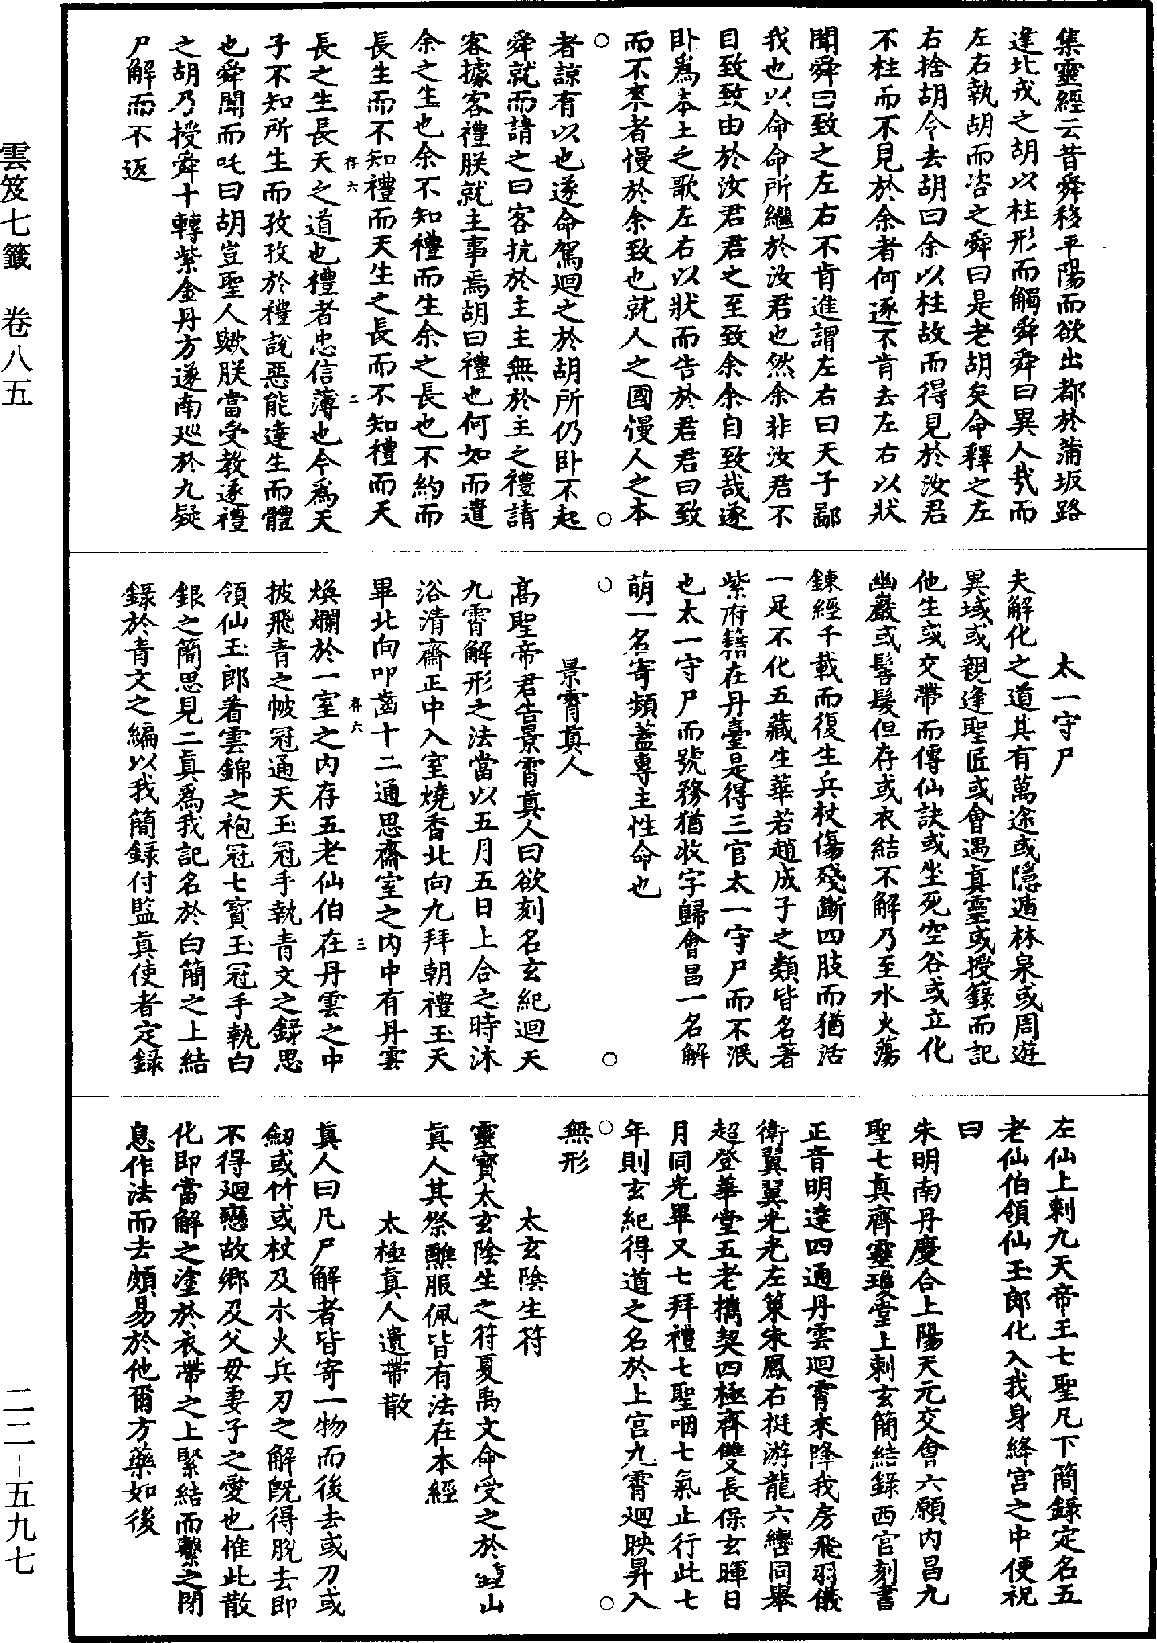 集靈經云昔舜移平陽而欲出都於蒲坂路
逢北戎之胡以柱形而觸舜舜曰異人哉而
左右執胡而咨之舜曰是老胡矣命釋之左
右捨胡令去胡曰余以柱故而得見於汝君
不柱而不見於余者何遂不肯去左右以狀
聞舜曰致之左右不肯進謂左右曰天子鄙
我也以命命所繼於汝君也然余非汝君不
自致致由於汝君君之至致余余自致哉遂
卧為本土之歌左右以狀而告於君君曰致
而不來者慢於余致也就人之國慢人之本
者諒有以也遂命駕迴之於胡所仍卧不起
舜就而請之曰客抗於主主無於主之禮請
客據客禮朕就主事焉胡曰禮也何如而遣
余之生也余不知禮而生余之長也不約而
長生而不知禮而天生之長而不知禮而天
存六 二
長之生長天之道也禮者忠信薄也今為天
子不知所生而孜孜於禮說惡能達生而體
也舜聞而吒曰胡豈聖人歟朕當受教逐禮
之胡乃授舜十轉紫金丹方遂南巡於九疑
尸解而不返
太一守尸
夫解化之道其有萬途或隱遁林泉或周遊
異域或親逢聖匠或會遇真靈或授籙而記
他生或交帶而傳仙訣或坐死空谷或立化
幽巖或髻髮但存或衣結不解乃至水火蕩
鍊經千載而復生兵杖傷殘斷四肢而猶活
一足不化五藏生華若趙成子之類皆名著
紫府籍在丹臺是得三官太一守尸而不泯
也太一守尸而號務猶收字歸會昌一名解
萌一名寄頻蓋專主性命也
景霄真人
高聖帝君告景霄真人曰欲刻名玄紀迴天
九霄解形之法當以五月五日上合之時沐
浴清齋正中入室燒香北向九拜朝禮玉天
畢北向叩齒十二通思齋室之內中有丹雲
存六 三
煥爛於一室之內存五老仙伯在丹雲之中
披飛青之帔冠通天玉冠手執青文之錄思
領仙玉郎著雲錦之袍冠七寶玉冠手執白
銀之簡思見二真為我記名於白簡之上結
錄於青文之編以我簡錄付監真使者定錄
左仙上剌九天帝王七聖凡下簡錄定名五
老仙伯領仙玉郎化入我身絳宮之中便祝
曰
朱明南丹慶合上陽天元交會六願內昌九
聖七真齊靈瓊堂上剌玄簡結錄西宮刻書
正音明達四通丹雲迴霄來降我房飛羽儀
衛翼翼光光左策朱鳳右挺游龍六轡同舉
超登華堂五老攜契四極齊雙長保玄暉日
月同光畢又七拜禮七聖咽七氣止行此七
年則玄紀得道之名於上宮九霄迴映昇入
無形
太玄陰生符
靈寶太玄陰生之符夏禹文命受之於鍾山
真人其祭醮服佩皆有法在本經
太極真人遺帶散
真人曰凡尸解者皆寄一物而後去或刀或
劒或竹或杖及水火兵刃之解既得脫去即
不得迴戀故鄉及父母妻子之愛也惟此散
化即當解之塗於衣帶之上緊結而繫之閉
息作法而去頗易於他爾方藥如後
雲笈七籤 卷八五
二二-五九七